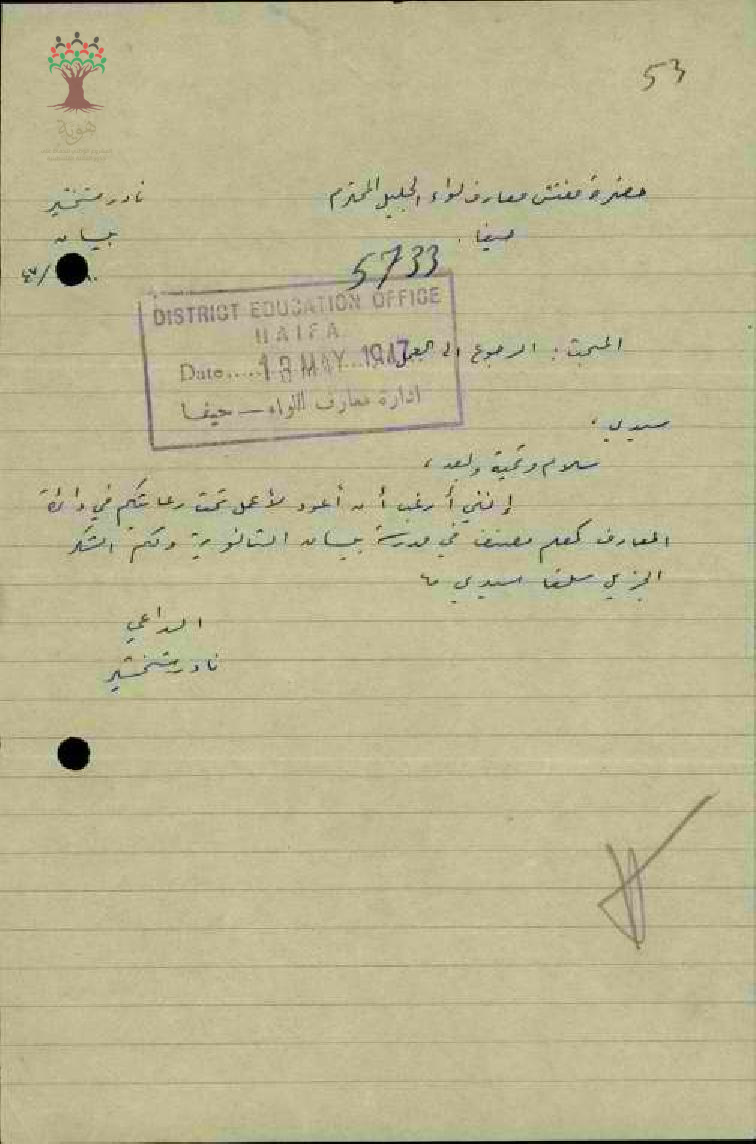 53
حضرة مفتش معارف لواء الجليل المحترم
نادر
حيفا .
بيسان
5733
DISTRICT EDUCATION OFFICE
HAIFA
Date ..... 13 MAY 1947
ادارة معارف اللواء — حيفا
المبحث : الرجوع الى العمل
سيدي .
سلام وتحية وبعد ،
إنني أرغب أن أعود لأعمل تحت رعايتكم في دائرة
المعارف كمعلم مصنف في مدرسة بيسان الثانوية ولكم الشكر
الجزيل سلفا سيدي
الداعي
نادر
هوية